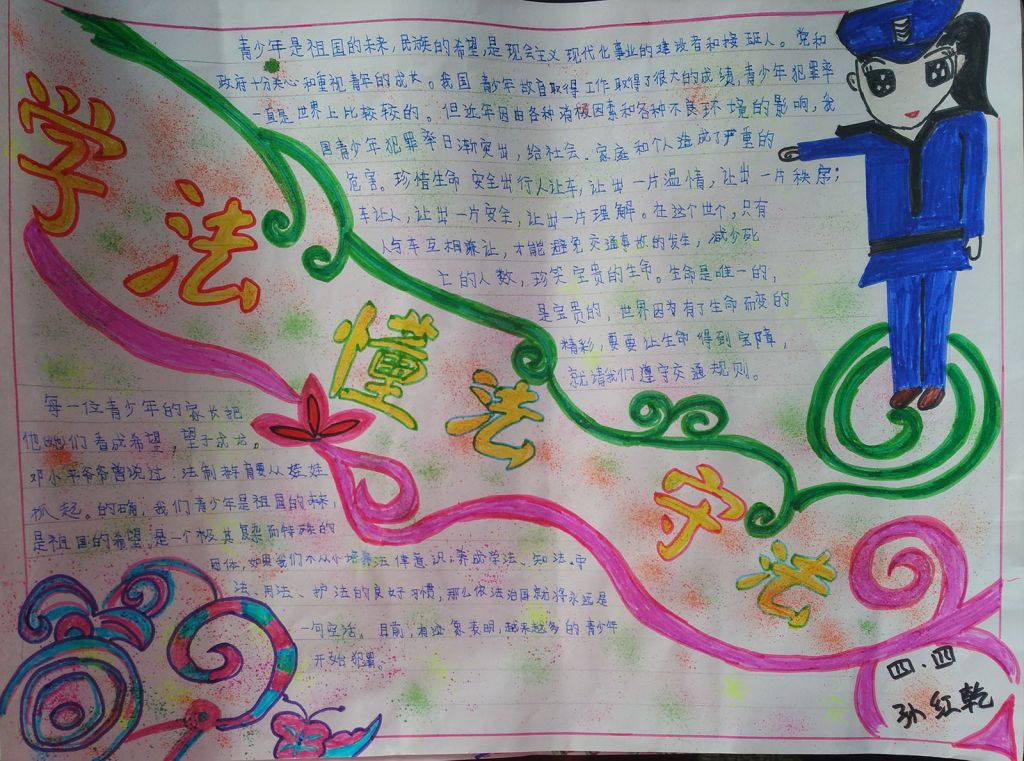 学法懂法守法
青少年是祖国的未来,民族的希望,是现会主义现代化事业的建设者和接班人。党和
政府十分关心和重视青年的成长。我国青少年教育取得工作取得了很大的成绩,青少年犯罪率
一直是世界上比较较的。但近年因由各种消极因素和各种不良环境的影响,我
国青少年犯罪率日渐突出,给社会、家庭和个人造成了严重的
危害。珍惜生命 安全出行人让车,让出一片温情,让出一片秩序;
车让人,让出一片安全,让出一片理解。在这个世个,只有
人与车互相兼让,才能避免交通事故的发生,减少死
亡的人数,珍笑宝贵的生命。生命是唯一的,
是宝贵的,世界因为有了生命而变的
精彩,要要让生命得到宝障,
就请我们遵守交通规则。
每一位青少年的家长把
他她们看成希望,望子成龙。
邓小平爷爷曾说过:法制教育要从娃娃
抓起。的确,我们青少年是祖国的未来,
是祖国的希望,是一个极其复杂而特殊的
团体,如果我们不从小培养法律意识;养成学法、知法、守
法、用法、护法的良好习惯,那么依法治国就将永远是
一句空话。目前,有迹象表明,越来越多的青少年
开始犯罪。
四.四
孙红乾